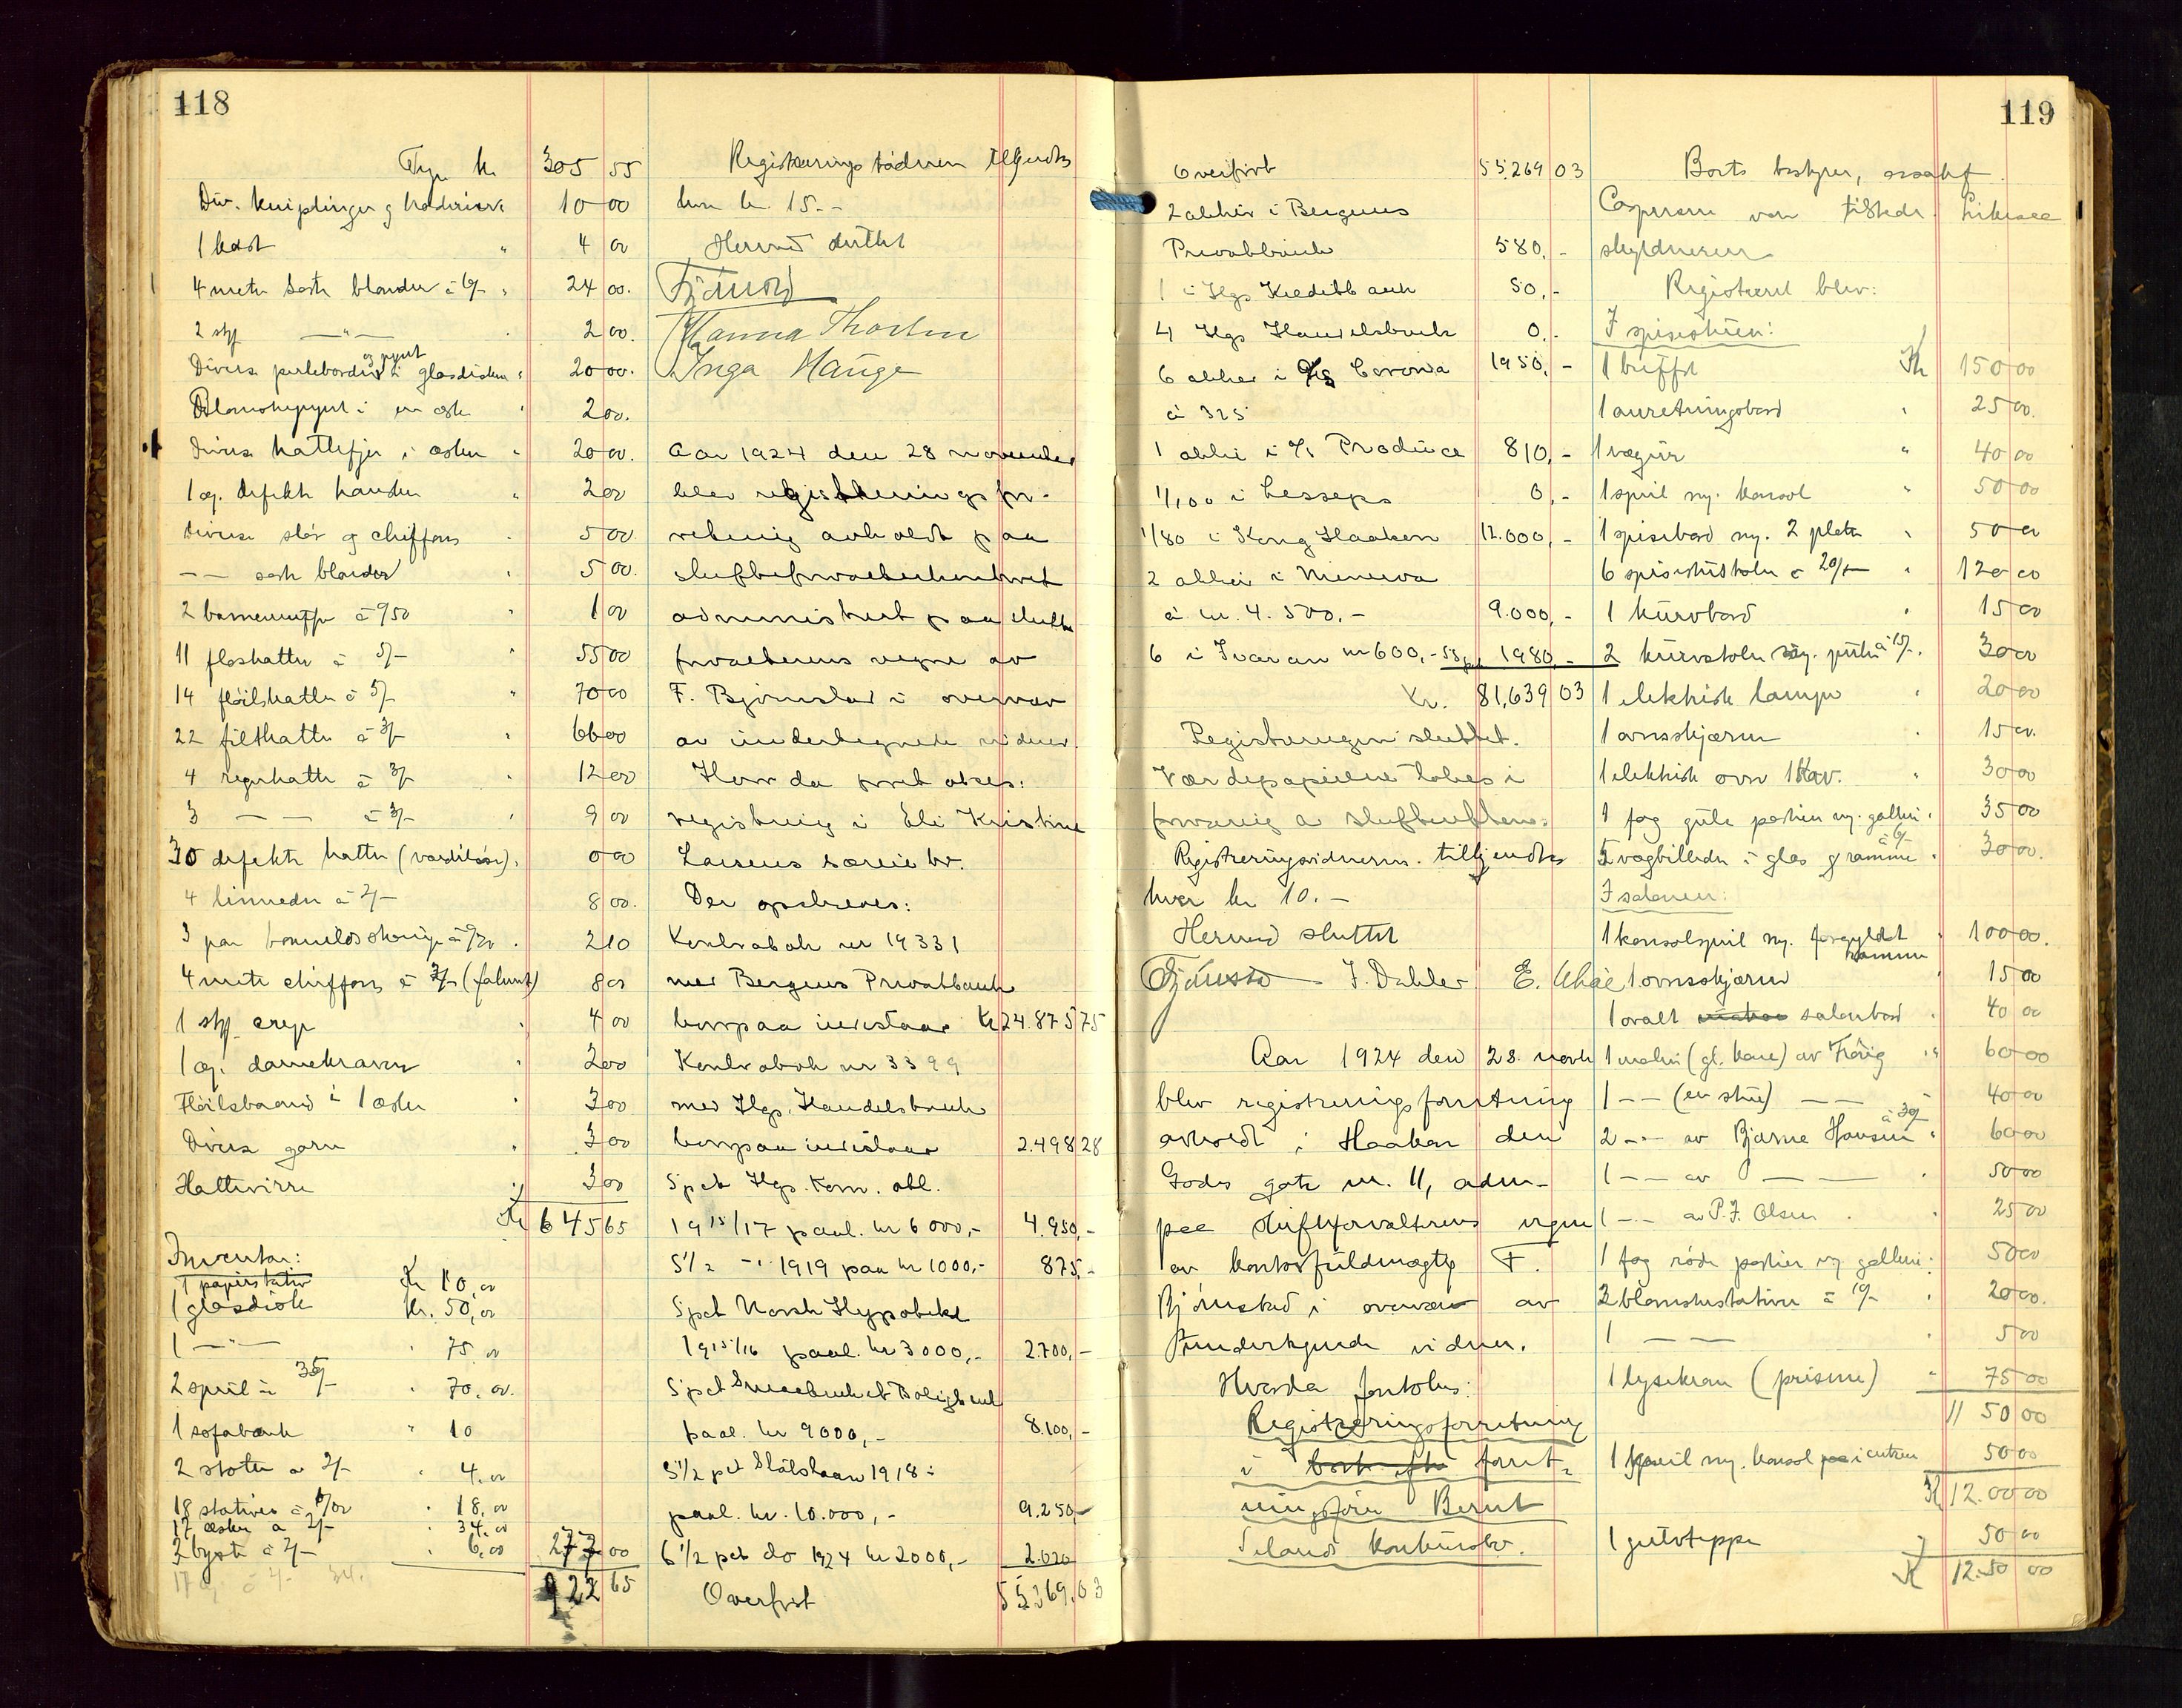 118
kr 305 55
Div. kniplinger og broderier 10 00
1 kost " 4 00
4 meter sorte blonder à 6/- " 24 00.
2 stk —"— 2 00.
Diverse perleborder og pynt i glasdisken " 20 00.
Blomsterpynt i en eske " 2 00.
Diverse hattefjær i esker " 20 00.
1 eg. defekte hansker " 2 00
Diverse slør og chiffons 5 00
—— sorte blonder 5 00.
2 barnemuffer à 0/50 " 1 00
11 floshatter à 5/- " 55 00
14 fløilshatter à 5/- " 70 00
22 filthatter à 3/- " 66 00
4 regnhatte à 3/- " 12 00
3 —— à 3/- " 9 00
30 defekte hatter (værdiløse) . 0 00
4 linneder à 2/- 8 00.
3 par à 0/70 . 2 10
4 meter chiffons à 2/- (falmet) 8 00
1 stk crep " 4 00
1 eg. damekraver " 2 00
Fløilsbaand i 1 eske " 3 00
Diverse garn " 3 00
Hattevirre " 3 00
Kr 645 65
Inventar:
1 papirstativ Kr 10,00
1 glasdisk Kr. 50,00
1 —"— " 75,00
2 speil à 35/- " 70,00.
1 sofabenk " 10
2 stoler à 2/- " 4,00
18 stativer à 1/00 " 18,00
17 esker à 2/- " 34,00
3 byster à 2/- " 6,00 277 00
922 65
Registreringsvidnerne tilkjendtes
hver kr. 15.-
Hermed sluttet
Bjørnstad
Hanna Thorsen
Inga Hauge
Aar 1924 den 28 november
blev registreringsfor-
retning avholdt paa
skifteforvalterkontoret
administrert paa skifte
forvalterens vegne av
F. Bjørnstad i overvær
av undertegnede vidner.
Hvor da foretokes:
registrering i Eli Kristine
Larsens særeie bo.
Der opskreves:
Kontrabok nr 19331
med Bergens Privatbank
hvorpaa indestaar Kr 24.875 75
Kontrabok nr 3399
med Hgs. Handelsbank
hvorpaa indestaar 2.498 28
5 pct Hgs. Kom. obl.
1915/17 paal. kr 6000,- 4.950,-
5 1/2 —"— 1919 paa kr 1000,- 875,-
5 pct Norsk Hypotek
1915/16 paal. kr 3000,- 2.700,-
5 pct Smaabruk og Boligbank
paal. kr 9000,- 8.100,-
5 1/2 pct Statslaan 1918:
paal. kr. 10.000,- 9.250,-
6 1/2 pct do 1924 kr 2000,- 2.020
Overført 55269,03
119
Overført 55.269 03
2 aktier i Bergens
Privatbank 580,-
1 i Hgs Kreditbank 50,-
4 Hgs Handelsbank 0,-
6 aktier i Corona 1950,-
à 325
1 aktie i Produce 810,-
1/100 i Lesseps 0,-
1/80 i Kong Haakon 12.000,-
2 aktier i Minerva
à kr. 4.500,- 9.000,-
6 i Ivaran kr 600,- 55 pct 1980,-
Kr. 81,639 03
Registreringen sluttet.
Værdipapirene tokes i
forvaring av skifteretten.
Registreringsvidnerne tilkjendtes
hver kr 10.-
Hermed sluttet
Bjørnstad J. Dahler E. Uhde
Aar 1924 den 28. novbr
blev registreringsforretning
avholdt i Haakon den
Godes gate nr. 11, adm-
paa skifteforvalterens vegne
av kontorfuldmægtig F.
Bjørnstad i overvær av
undertegnede vidner.
Hvorda foretokes:
Registreringsforretning
i forret-
ningsfører Bernt
Selands konkursbo.
Boets bestyrer, orsakf.
Caspersen var tilstede. Likesaa
skyldneren
Registrert blev:
I spisestuen:
1 buffet Kr 150 00
1 anretningsbord " 25 00.
1 vægur " 40 00
1 speil m. konsol " 50 00
1 spisebord m. 2 plater " 50 00
6 spisestuestoler à 20/- " 120 00
1 kurvbord " 15 00
2 kurvstoler m. puter à 15/- . 30 00
1 elektrisk lampe " 20 00
1 ovnsskjærm " 15 00.
1 elektrisk ovn 1 Kw. " 30 00
1 fag gule portier m. galleri " 35 00
5 vægbilleder i glas og ramme à 6/- " 30 00.
I salonen:
1 konsolspeil m. forgyldt ramme " 100 00.
1 ovnsskjærm " 15 00
1 ovalt salonbord " 40 00
1 maleri (gl. kone) av " 60 00
1 —— (en stue) —— " 40 00
2 —— av Bjarne Hansen à 30/- " 60 00
1 —— av —— " 50 00
1 —— av P.J. Olsen " 25 00
1 fag røde portier m galleri " 50 00
2 blomsterstativer à 10/- " 20 00.
1 —— " 5 00
1 lysekrone (prisme) " 75 00
1150 00
1 speil m. konsol i entreen 50 00
Kr 12.00 00
1 gulvteppe " 50 00
Kr 12.50 00